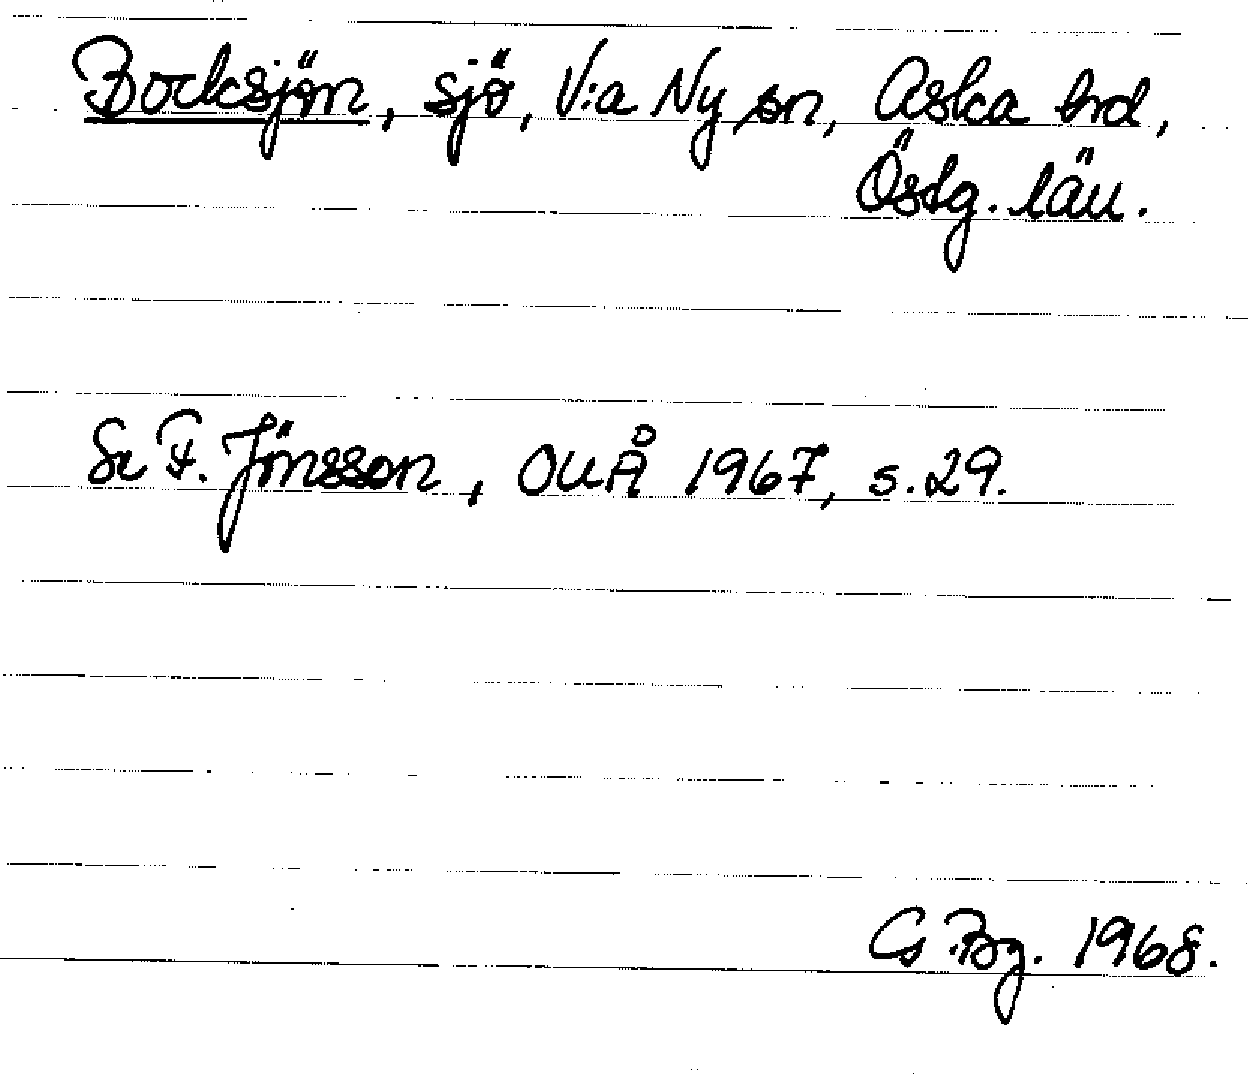 Bocksjön, sjö, V:a Ny sn, Aska hd,
Östg. län.
Se F. Jönsson, OUÅ 1967, s. 29.
G Bg. 1968.